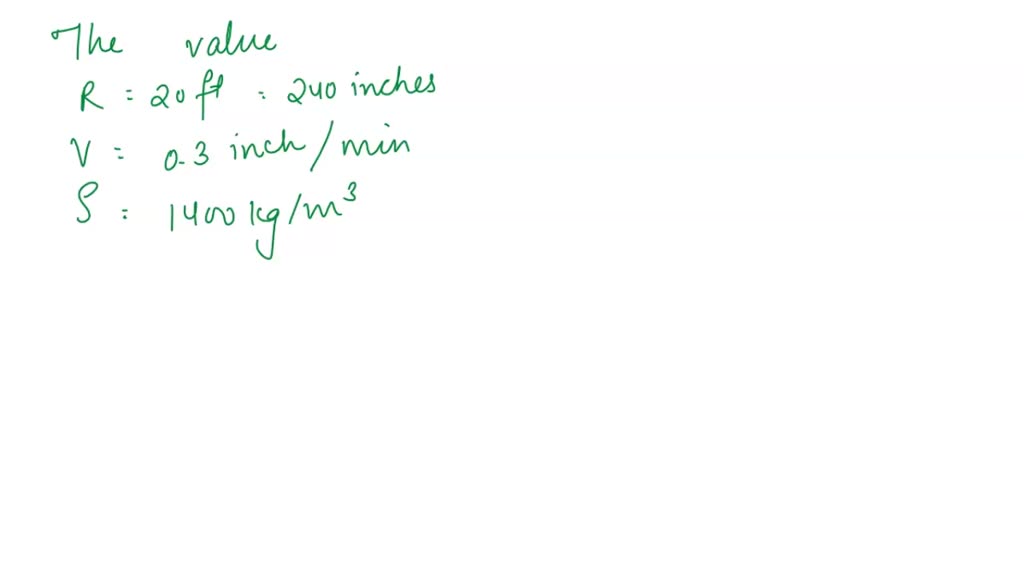 The value
R = 20 ft = 240 inches
V = 0.3 inch/min
ρ = 1400 kg/m³